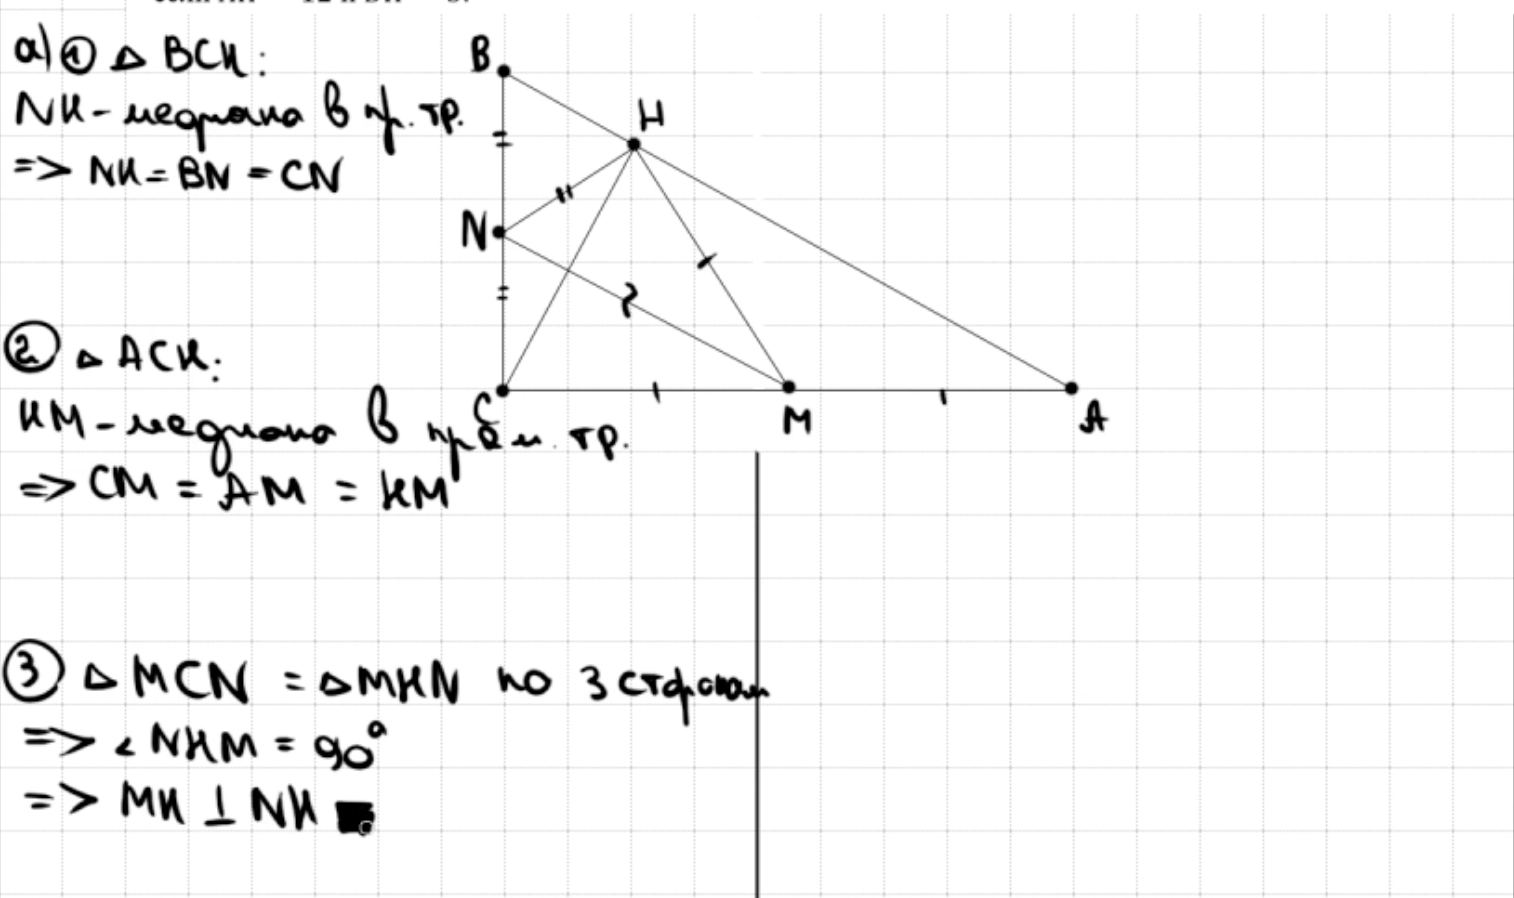 а) ① △ BCH:
NH - медиана в пр. тр.
=> NH = BN = CN
② △ ACH:
HM - медиана в прям. тр.
=> CM = AM = HM
③ △ MCN = △ MHN по 3 сторонам
=> ∠ NHM = 90°
=> MH ⊥ NH ■
B
H
N
C
M
A